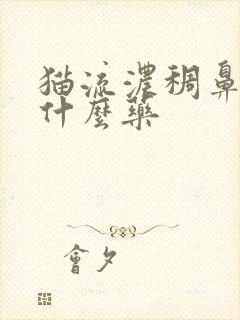 猫流濃稠鼻
什麼藥
會夕